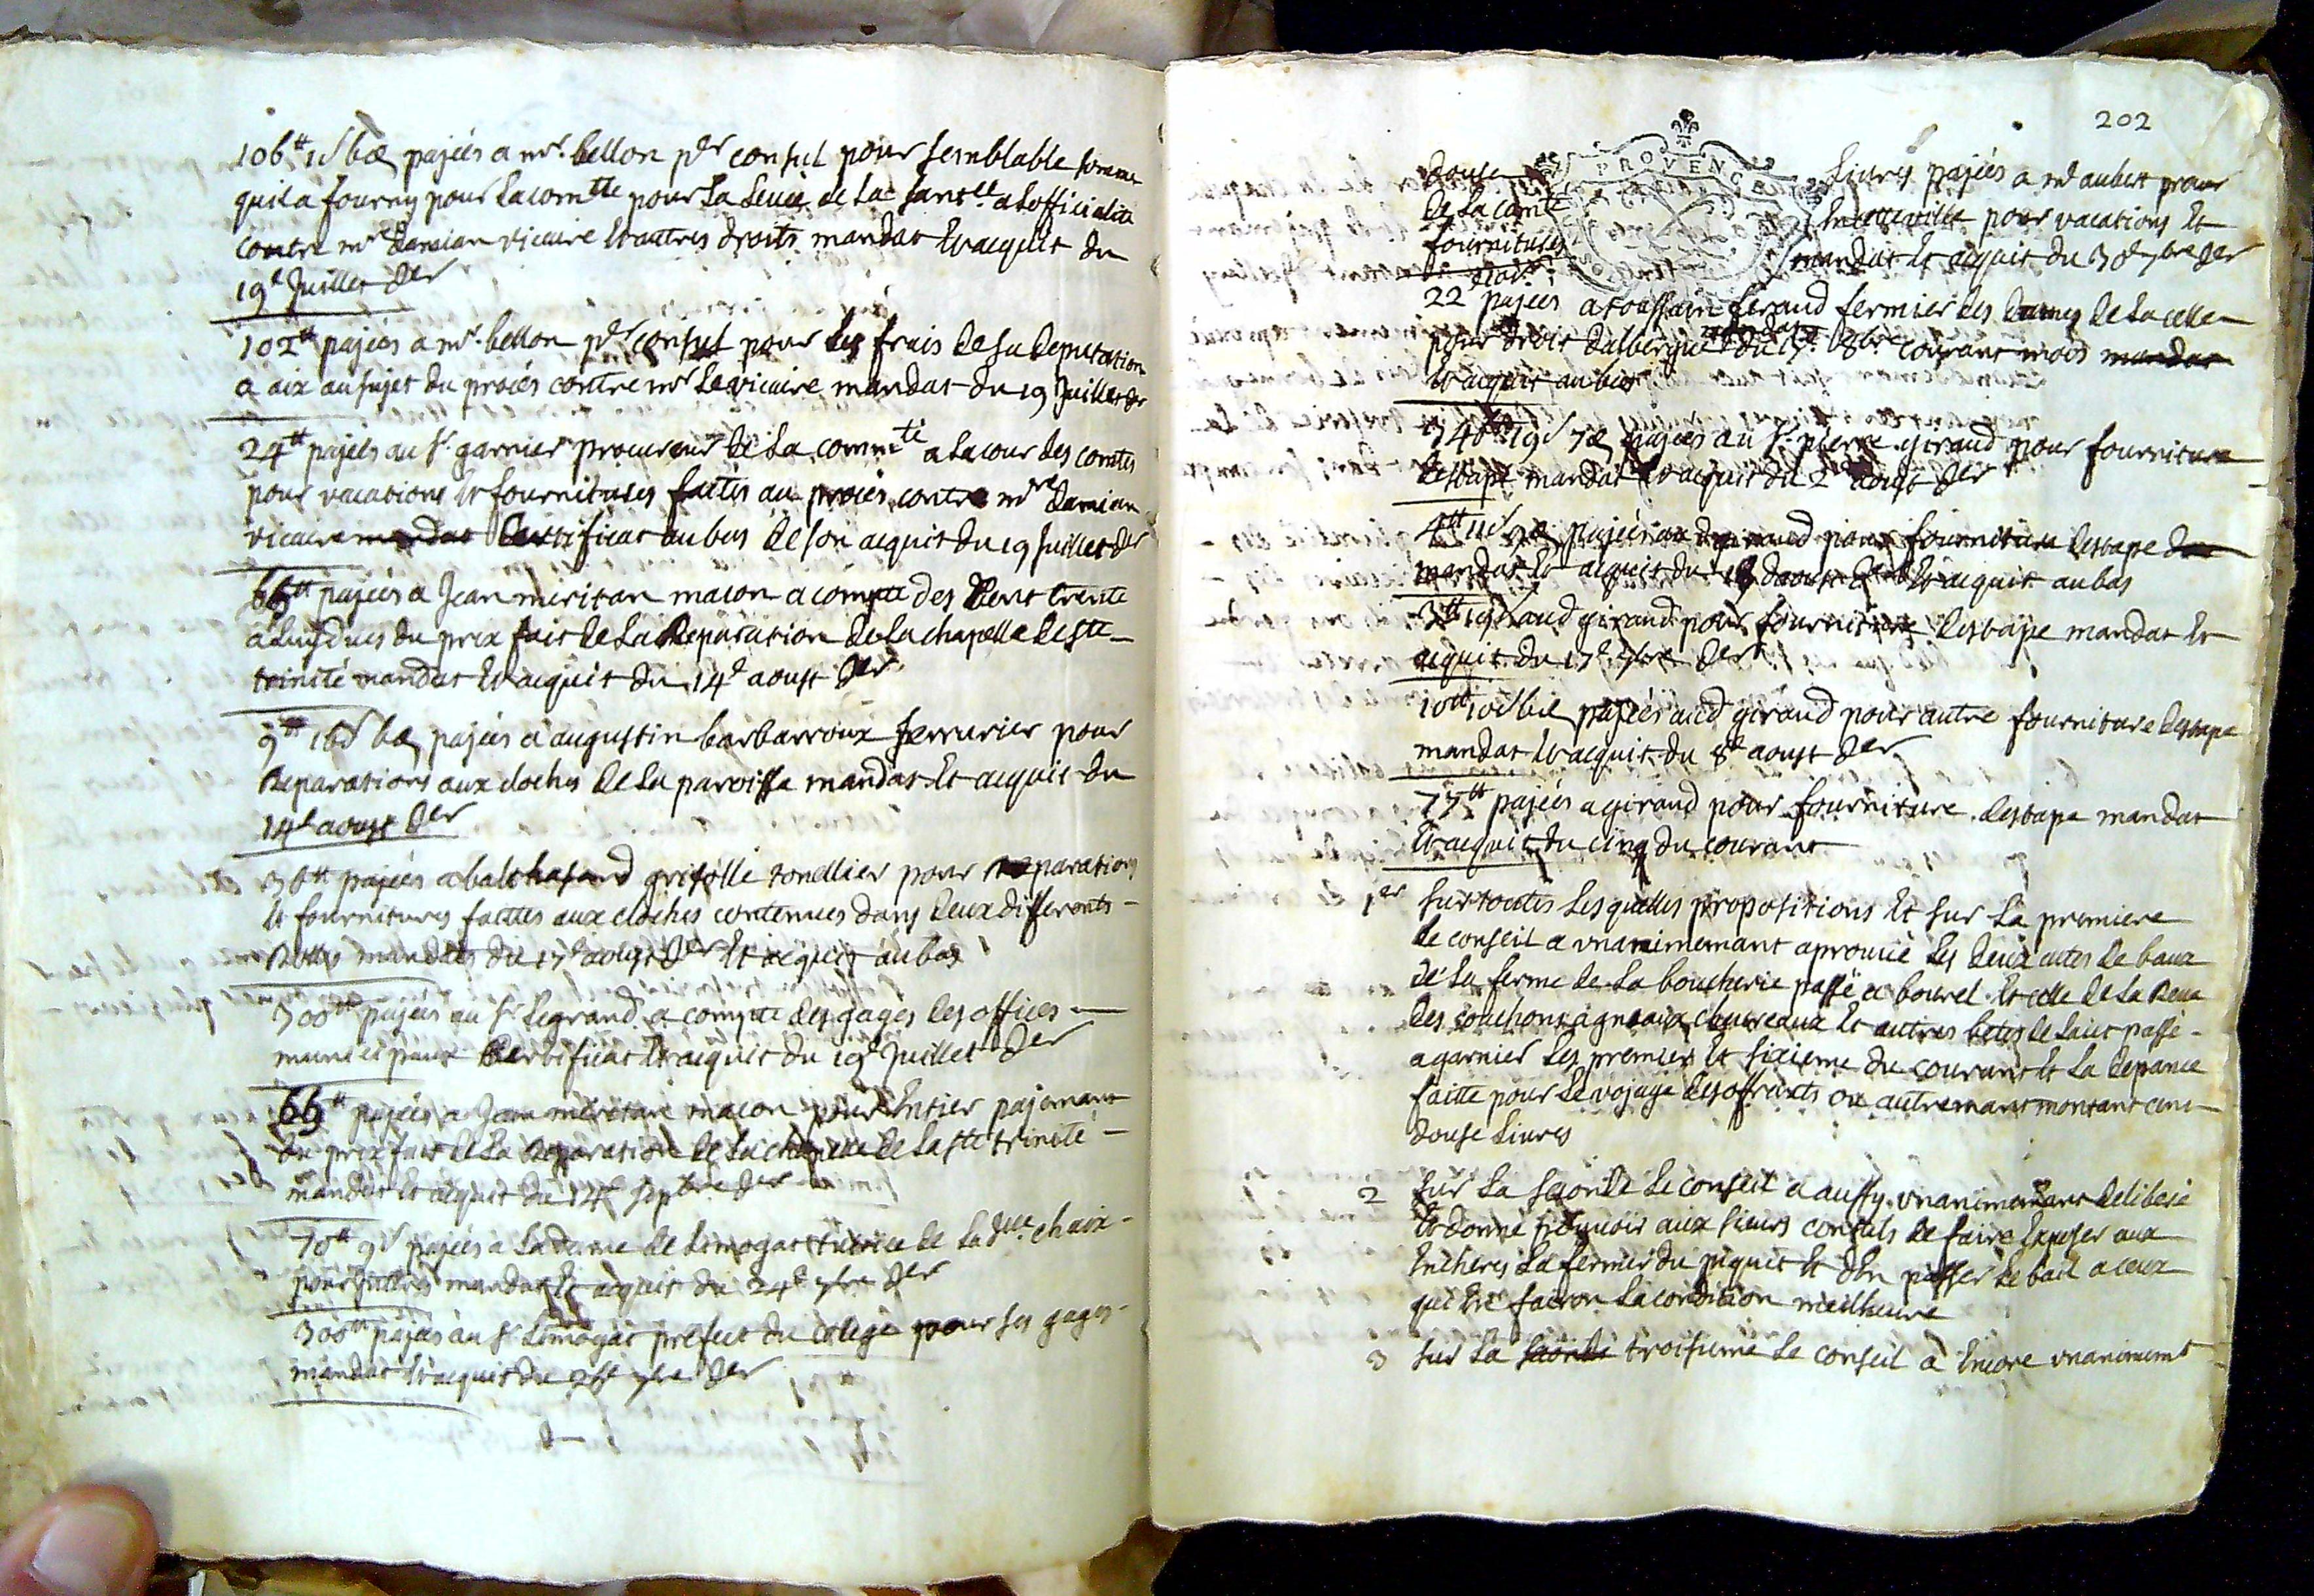 106tt 1s 6d pajées a mr. bellon per consul pour semblable somme
quil a fourny pour la comtte pour la levée de la santce. a lofficialité
contre mre damian vicaire et autres droits mandat et acquit du
19e Juillet der
102tt pajées a mr. bellon per consul pour les frais de sa deputation
a aix au sujet du procés contre mr le vicaire mandat du 19 Juillet der
24tt pajées au sr garnier procureur de la commté a la cour des comtes
pour vacations et fournitures faites au procés contre mre damian
vicaire mandat certificat au bas de son acquit du 19 Juillet der
66tt pajées a Jean meritan macon a compte des cent trente
du prix fait de la Reparation de la chapelle de ste
trinité mandat et acquit du 14e aoust der
9tt 16s 6d pajées a augustin barbarroux serrurier pour
Reparations aux cloches de la paroisse mandat et acquit du
14e aoust der
36tt pajées a balthasard grisolle tonellier pour reparations
et fournitures faittes aux cloches contenues dans deux differents
Rolles mandats du 17e aoust der et acquit au bas
300tt pajées au sr Legrand a compte des gages des offices
municipaux certificat et acquit du 19e Juillet der
66tt pajées a Jean meritan macon pour entier pajemant
du prix fait de la Reparation de la chapelle de la ste trinité
mandat et acquit du 14e septbre der
70tt 9s pajées a la dame de Limogat tutrice de la dlle. chaix
pour mandat et acquit du 24e 7bre der
300tt pajées au sr Limogat prefect du colege pour ses gages
mandat et acquit du 26e 7bre der
202
PROVENCE
douse livres pajées a me aubert procur
de la comté en cette ville pour vacations et
fournitures mandat et acquit du 30e 7bre der
22 pajées a toussain ferand fermier des dames de la celle
pour droit dalbergue mandat du 17e 8bre courant mois mandat
et acquit au bas
340tt 19s 7d pajées au sr pierre giraud pour fourniture
destape mandat et acquit du 2e aoust der
4tt 11s 9d pajées au d giraud pour fourniture destape
mandat et acquit du daoust der et acquit au bas
3tt 19s aud giraud pour fourniture destape mandat et
acquit du 17e 7bre der
10tt 10s 6d pajées aud giraud pour autre fourniture destape
mandat et acquit du 8e aoust der
77tt pajées a giraud pour fourniture destape mandat
et acquit du cinq du courant
1er sur toutes lesquelles propositions et sur la premiere
le conseil a unanimemant aprouvé les deux actes de baux
de la ferme de la boucherie passé a bourel et celle de la Reva
des couchons agneaux chevreaux et autres betes de lait passé
a garnier les premier et sixieme du courant et la depance
faitte pour le vojage des offrants ou autremant montant cent
douse livres
2 sur la segonde le conseil a aussy unanimemant deliberé
et donné pouvoir aux sieurs consuls de faire exposer aux
encheres la ferme du piquet et den passer le bail a ceux
qui en fairon la condition meilheure
3 sur la segonde troisieme le conseil a encore unanimemt